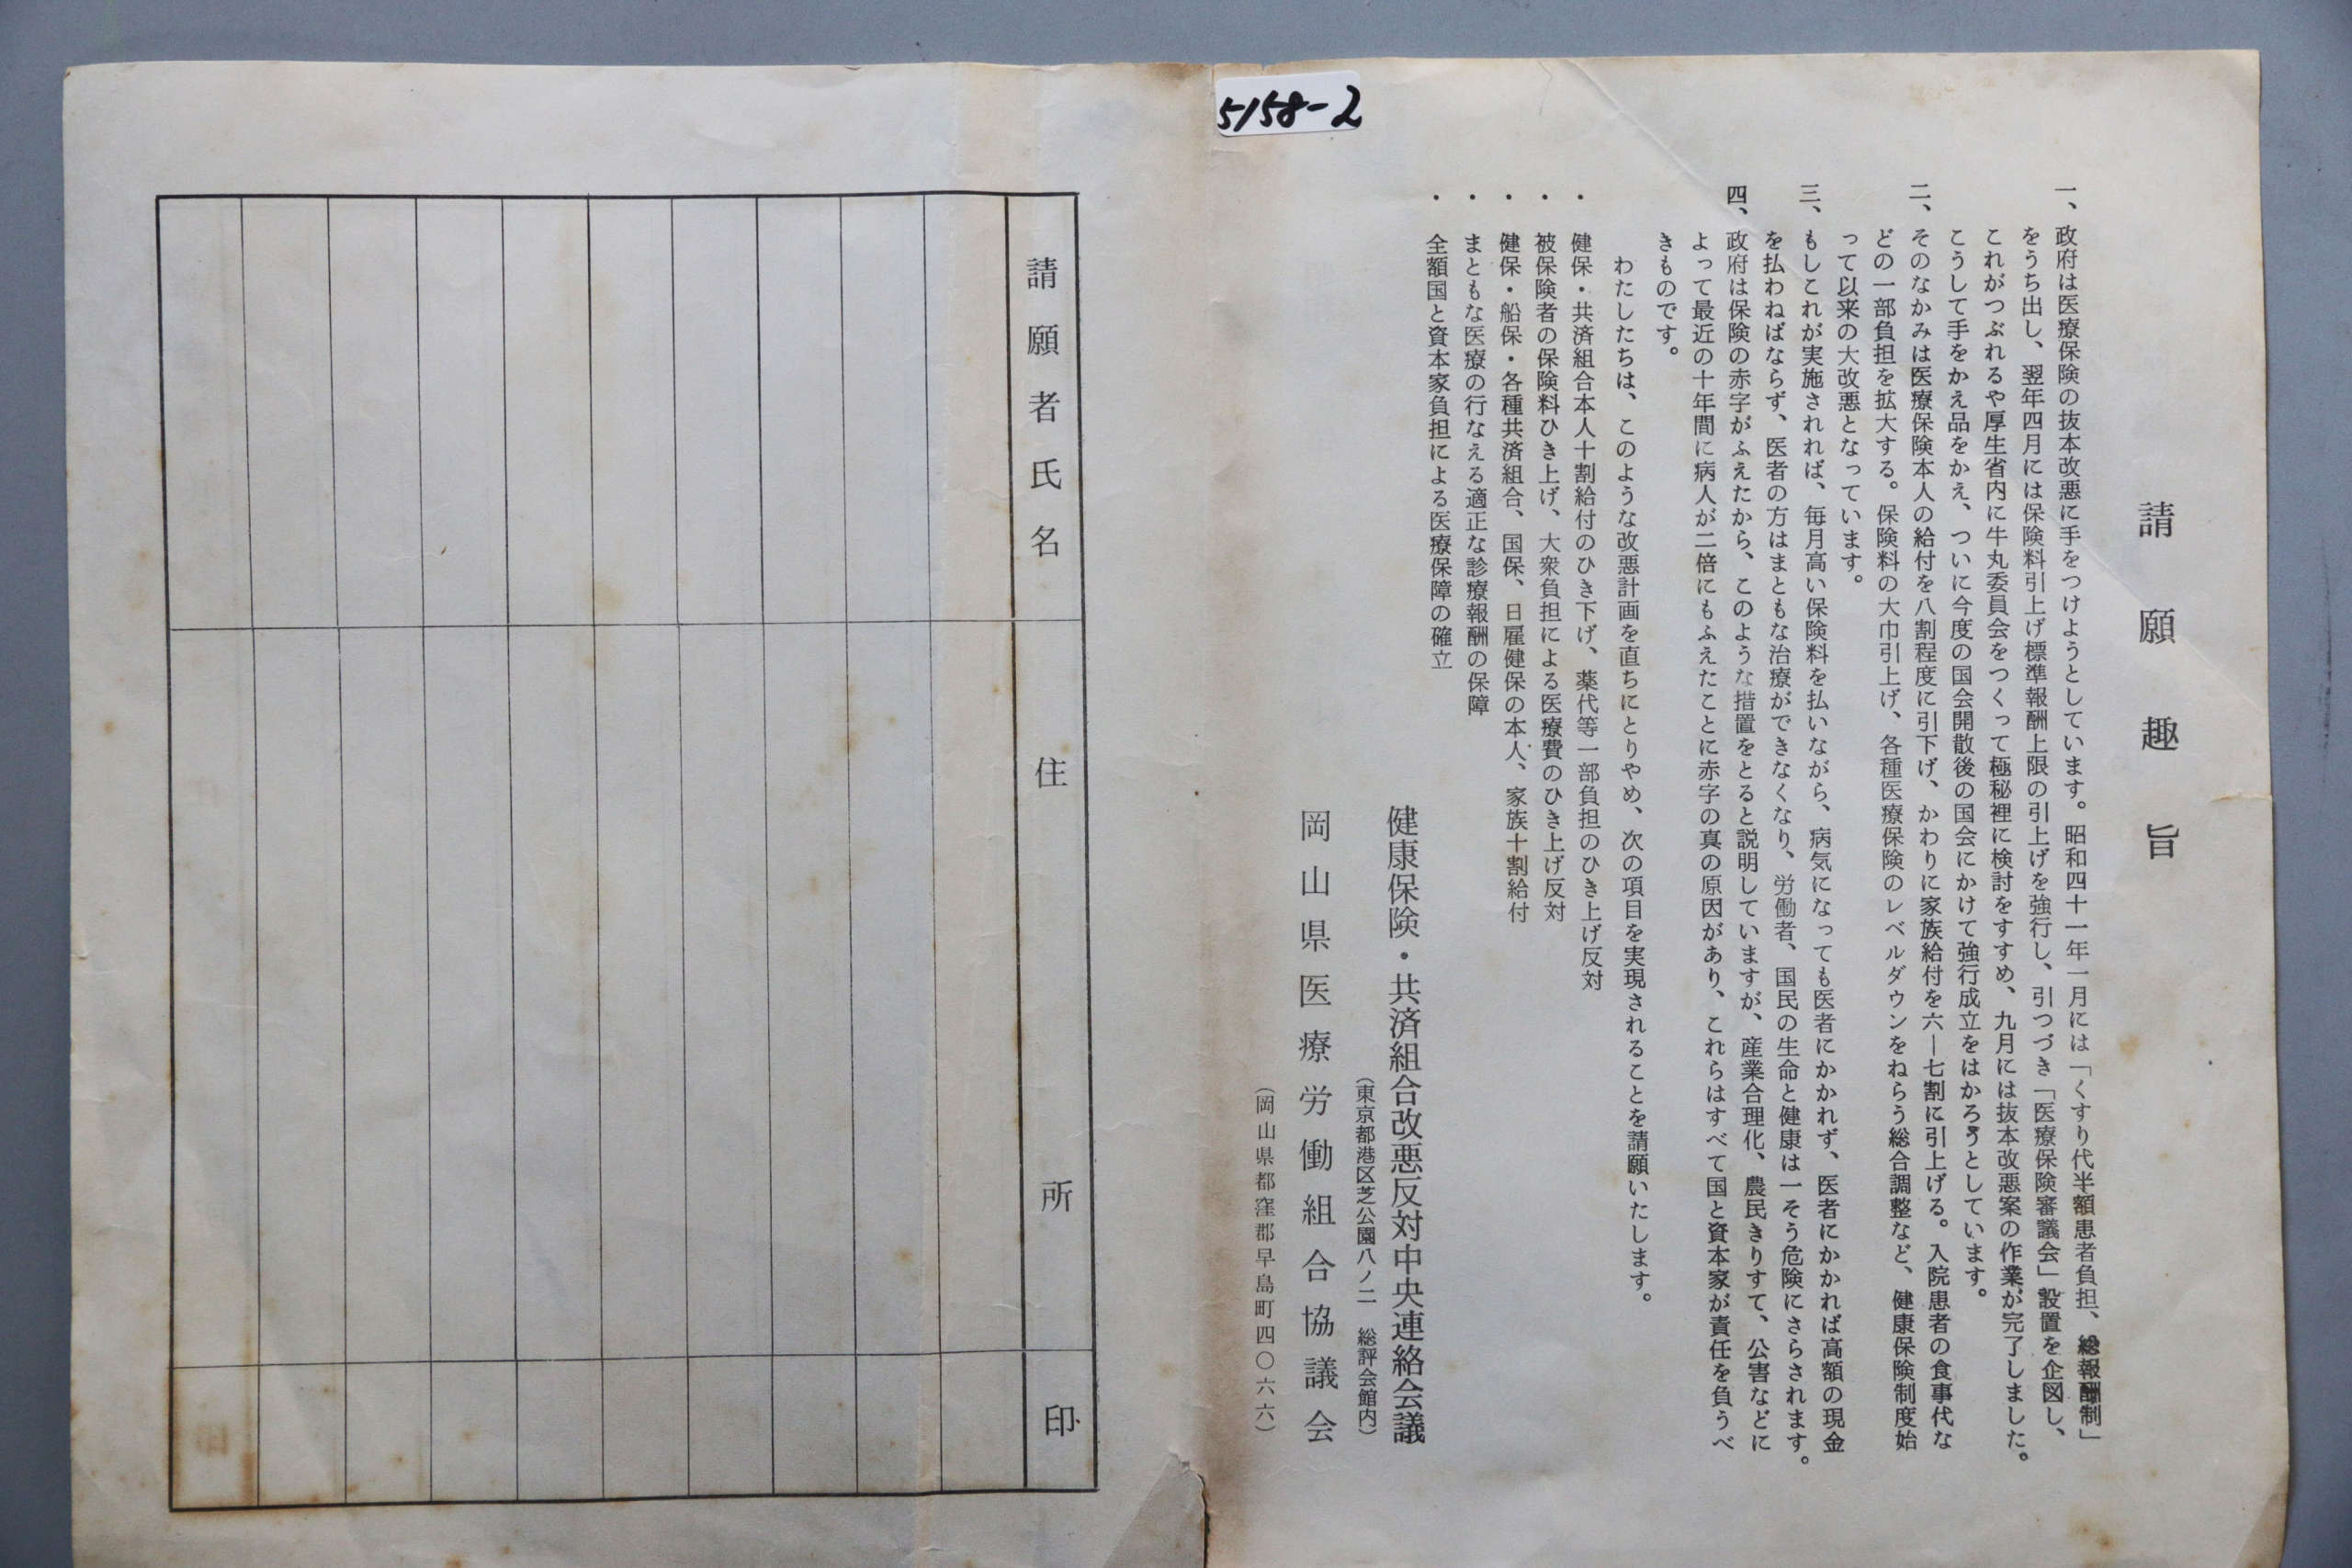 5158-2
請願趣旨
一、政府は医療保険の抜本改悪に手をつけようとしています。昭和四十一年一月には「くすり代半額患者負担、総報酬制」
をうち出し、翌年四月には保険料引上げ標準報酬上限の引上げを強行し、引つづき「医療保険審議会」設置を企図し、
これがつぶれるや厚生省内に牛丸委員会をつくって極秘裡に検討をすすめ、九月には抜本改悪案の作業が完了しました。
こうして手をかえ品をかえ、ついに今度の国会開散後の国会にかけて強行成立をはかろうとしています。
二、そのなかみは医療保険本人の給付を八割程度に引下げ、かわりに家族給付を六―七割に引上げる。入院患者の食事代な
どの一部負担を拡大する。保険料の大巾引上げ、各種医療保険のレベルダウンをねらう総合調整など、健康保険制度始
って以来の大改悪となっています。
三、もしこれが実施されれば、毎月高い保険料を払いながら、病気になっても医者にかかれず、医者にかかれば高額の現金
を払わねばならず、医者の方はまともな治療ができなくなり、労働者、国民の生命と健康は一そう危険にさらされます。
四、政府は保険の赤字がふえたから、このような措置をとると説明していますが、産業合理化、農民きりすて、公害などに
よって最近の十年間に病人が二倍にもふえたことに赤字の真の原因があり、これらはすべて国と資本家が責任を負うべ
きものです。
わたしたちは、このような改悪計画を直ちにとりやめ、次の項目を実現されることを請願いたします。
・健保・共済組合本人十割給付のひき下げ、薬代等一部負担のひき上げ反対
・被保険者の保険料ひき上げ、大衆負担による医療費のひき上げ反対
・健保・船保・各種共済組合、国保、日雇健保の本人、家族十割給付
・まともな医療の行なえる適正な診療報酬の保障
・全額国と資本家負担による医療保障の確立
健康保険・共済組合改悪反対中央連絡会議
（東京都港区芝公園八ノ二　総評会館内）
岡山県医療労働組合協議会
（岡山県都窪郡早島町四〇六六）
請願者氏名
住所
印